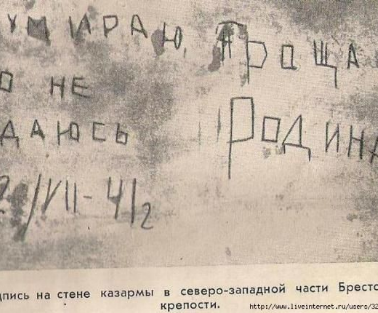 УМИРАЮ,
О НЕ
ДАЮСЬ
2/VII-41г
ПРОЩА
РОДИНА
дпись на стене казармы в северо-западной части Брест
крепости.
http://www.liveinternet.ru/users/32